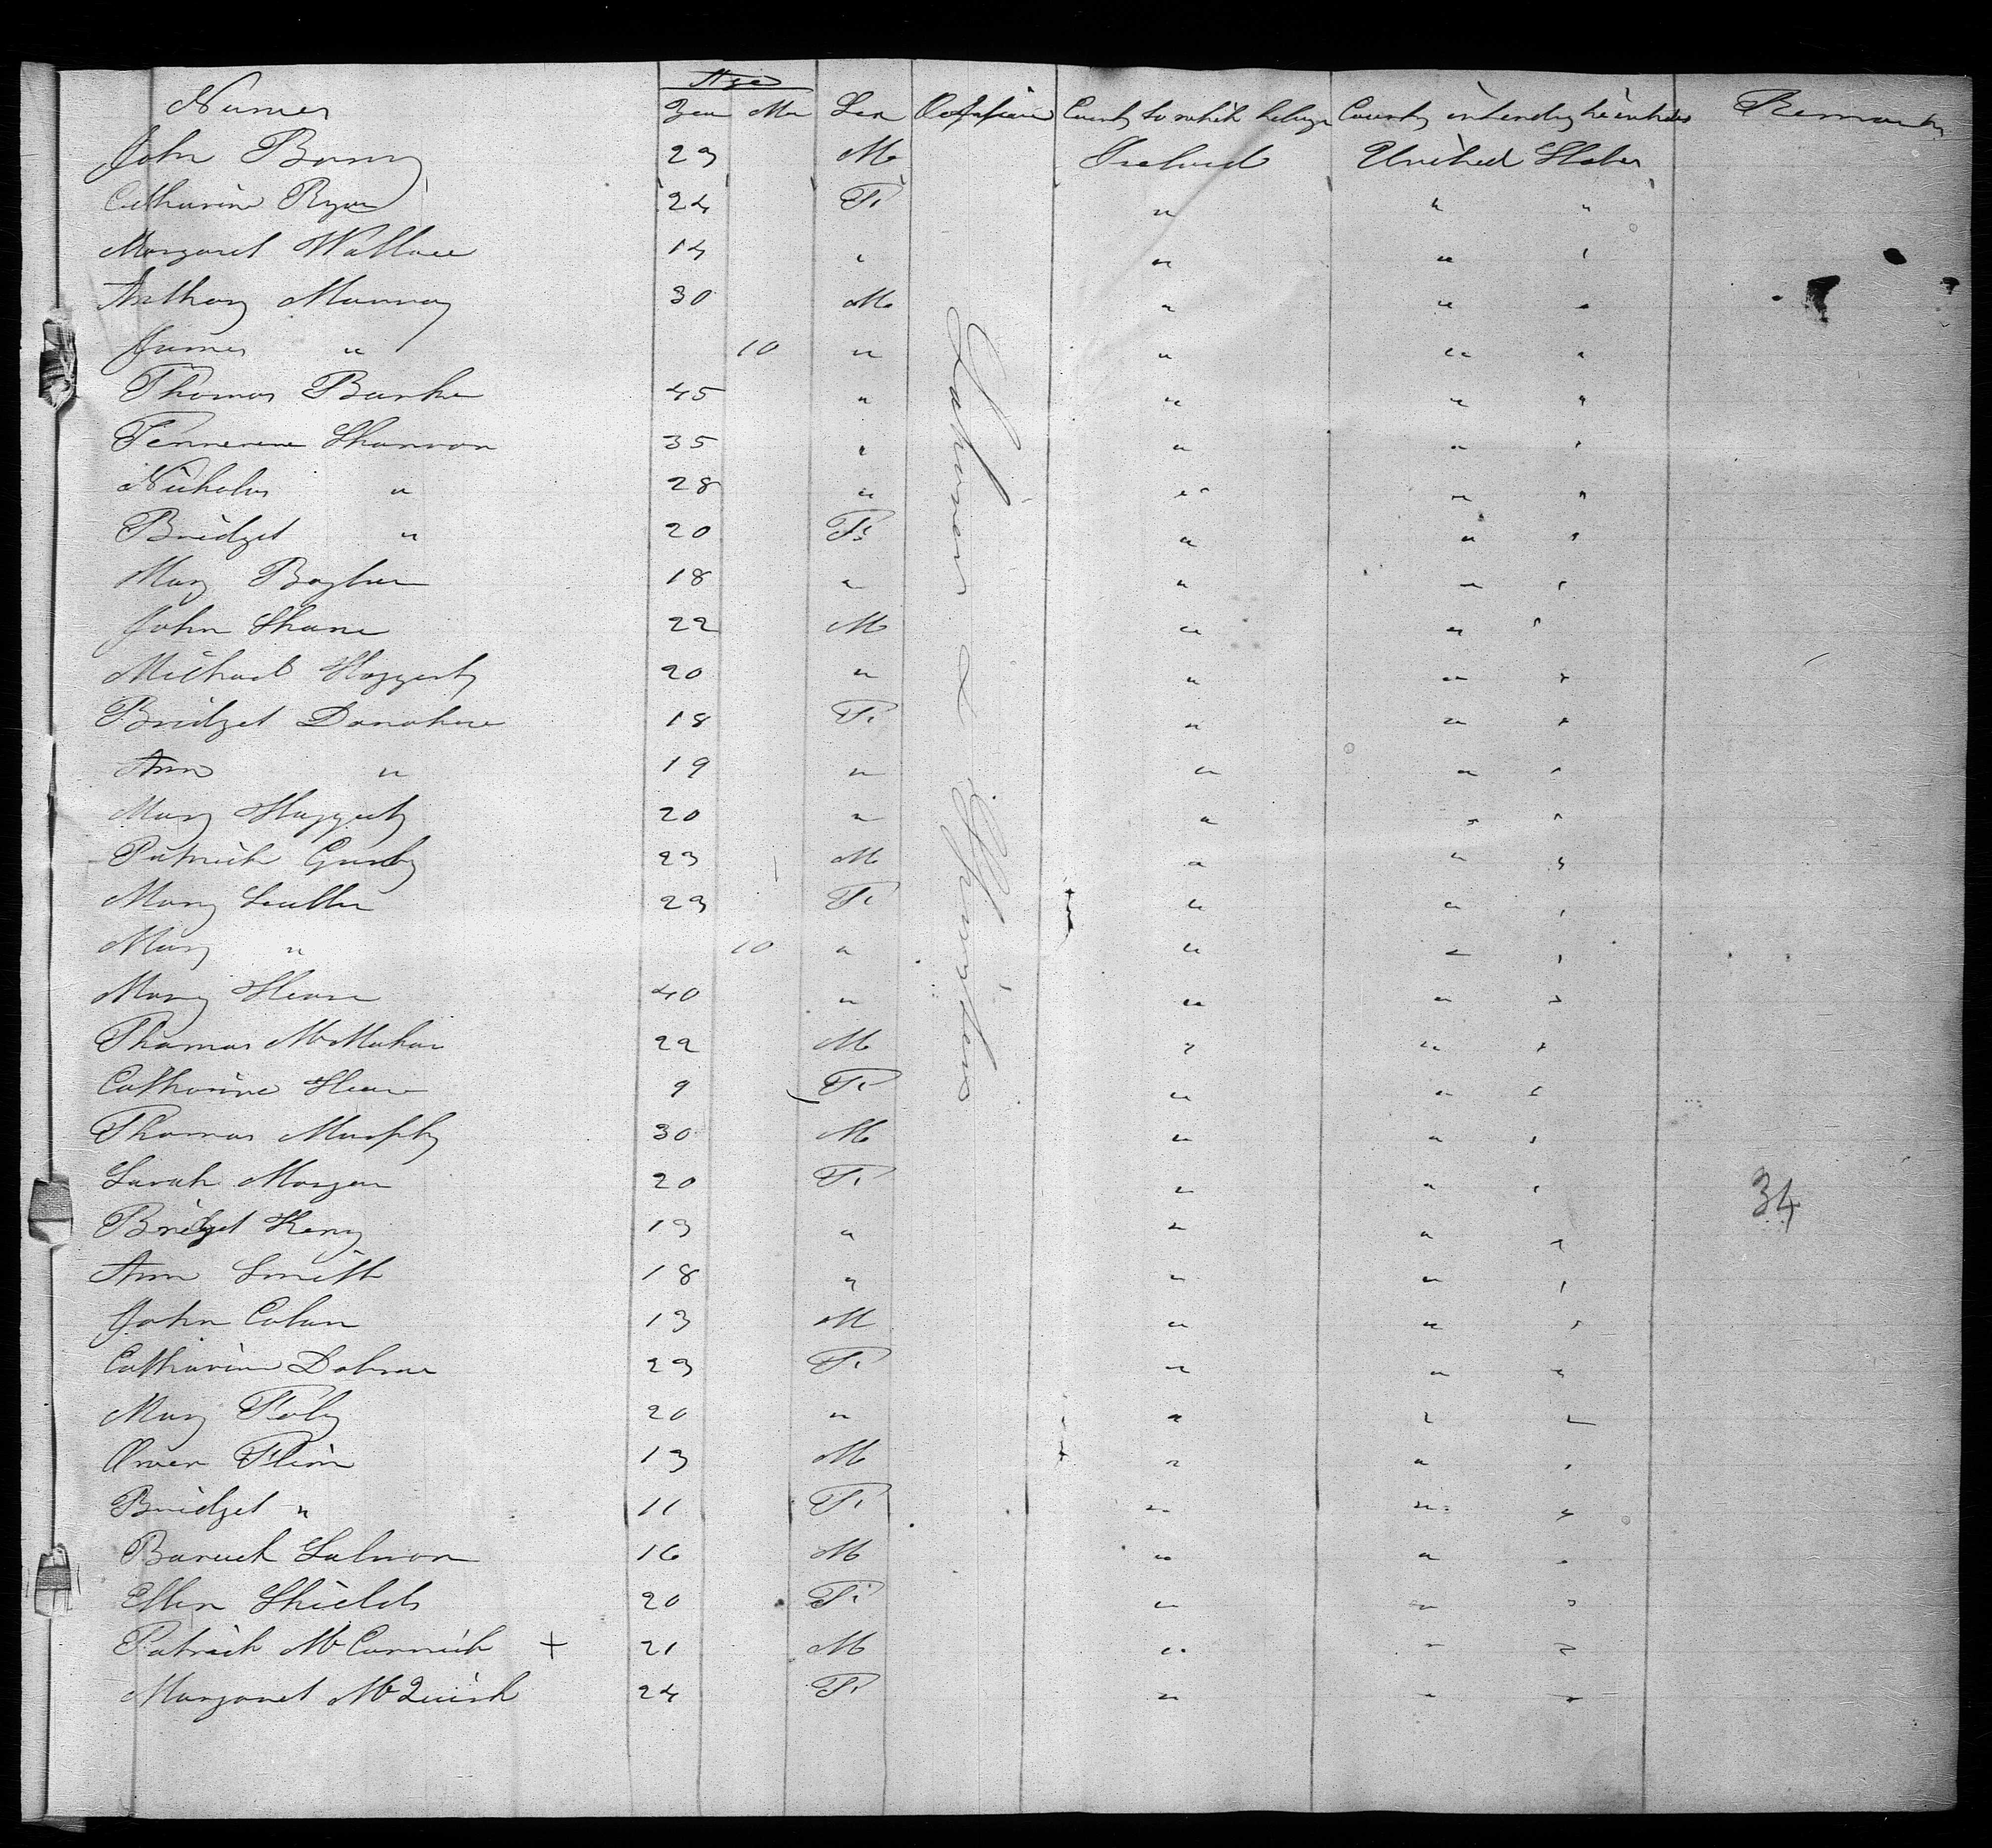 Age
Names Year Mo Sex Occupation Country to which belongs Country intending to inhabit Remarks
John 23 M Ireland United States
Catharine Ryan 24 F. " " "
Margaret Wallace 13 " " " "
Anthony Murray 30 M " " "
James " 10 " " " "
Thomas Burke 45 " " " "
Shannon 35 " " " "
Nicholas " 28 " " " "
Bridget " 20 F. " " "
Mary 18 " " " "
John Shane 22 M " " "
Michael Haggerty 20 " " " "
Bridget Donohue 18 F. " " "
Ann " 19 " " " "
Mary Haggerty 20 " " " "
Patrick 23 M " " "
Mary 23 F. " " "
Mary " 10 " " " "
Mary 40 " " " "
Thomas McMahan 22 M " " "
Catharine 9 F. " " "
Thomas Murphy 30 M " " "
Sarah Morgan 20 F. " " "
Bridget 13 " " " "
Ann Smith 18 " " " "
John Colan 13 M " " "
Catharine 23 F. " " "
Mary Foly 20 " " " "
Owen Flinn 13 M " " "
Bridget " 11 F. " " "
Salmon 16 M " " "
Ellen Shields 20 F. " " "
Patrick McCormick + 21 M " " "
Margaret McQuirk 24 F. " " "
Laborers & Spinsters
34